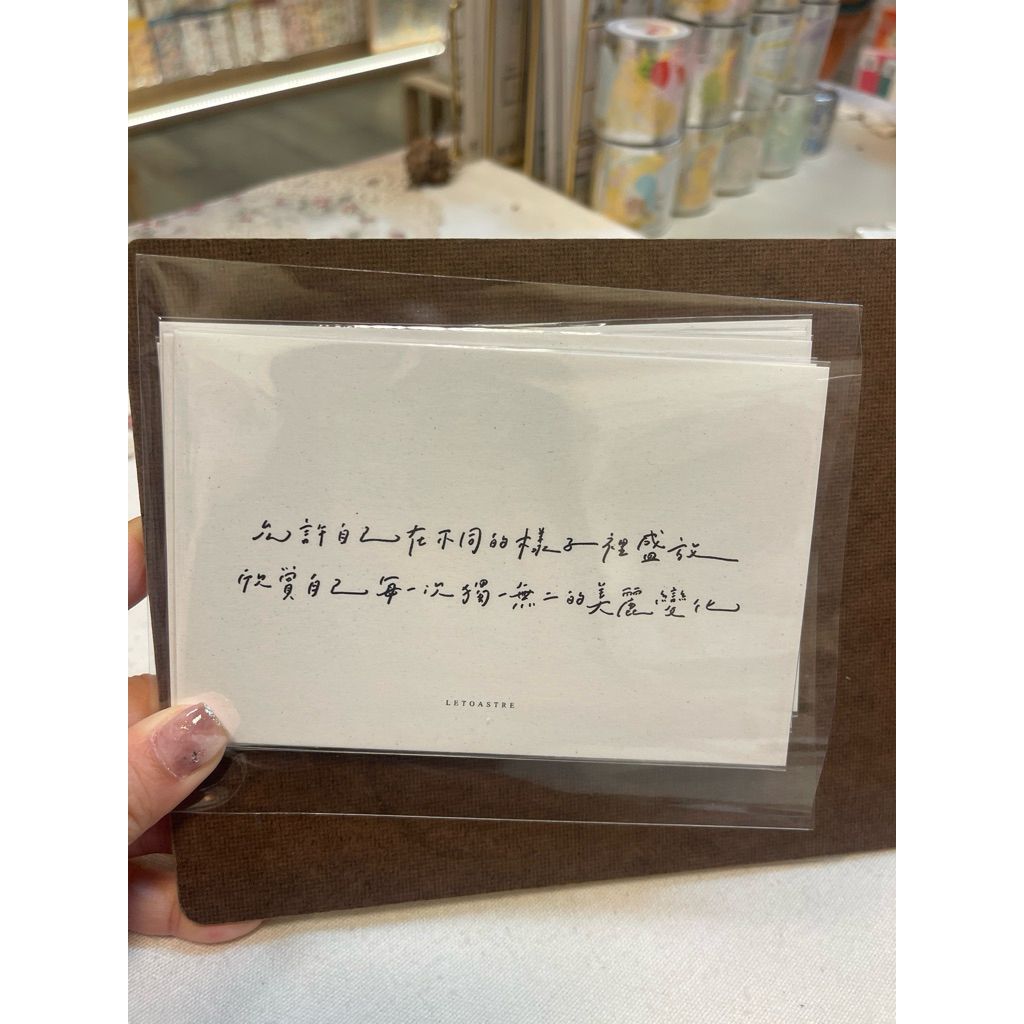 允許自己在不同的樣子裡盛放
欣賞自己每一次獨一無二的美麗變化
LETOASTRE